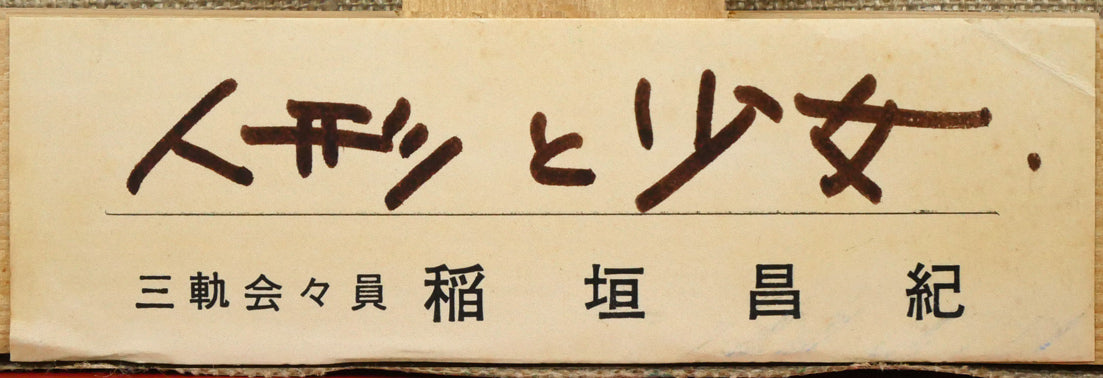 人形と少女.
三軌会々員 稲垣昌紀